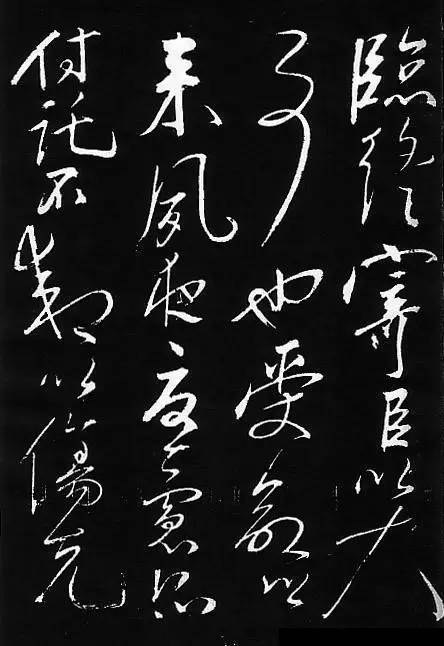 臨終寄臣以大
事也受命以
來夙夜憂慮恐
付託不效以傷先